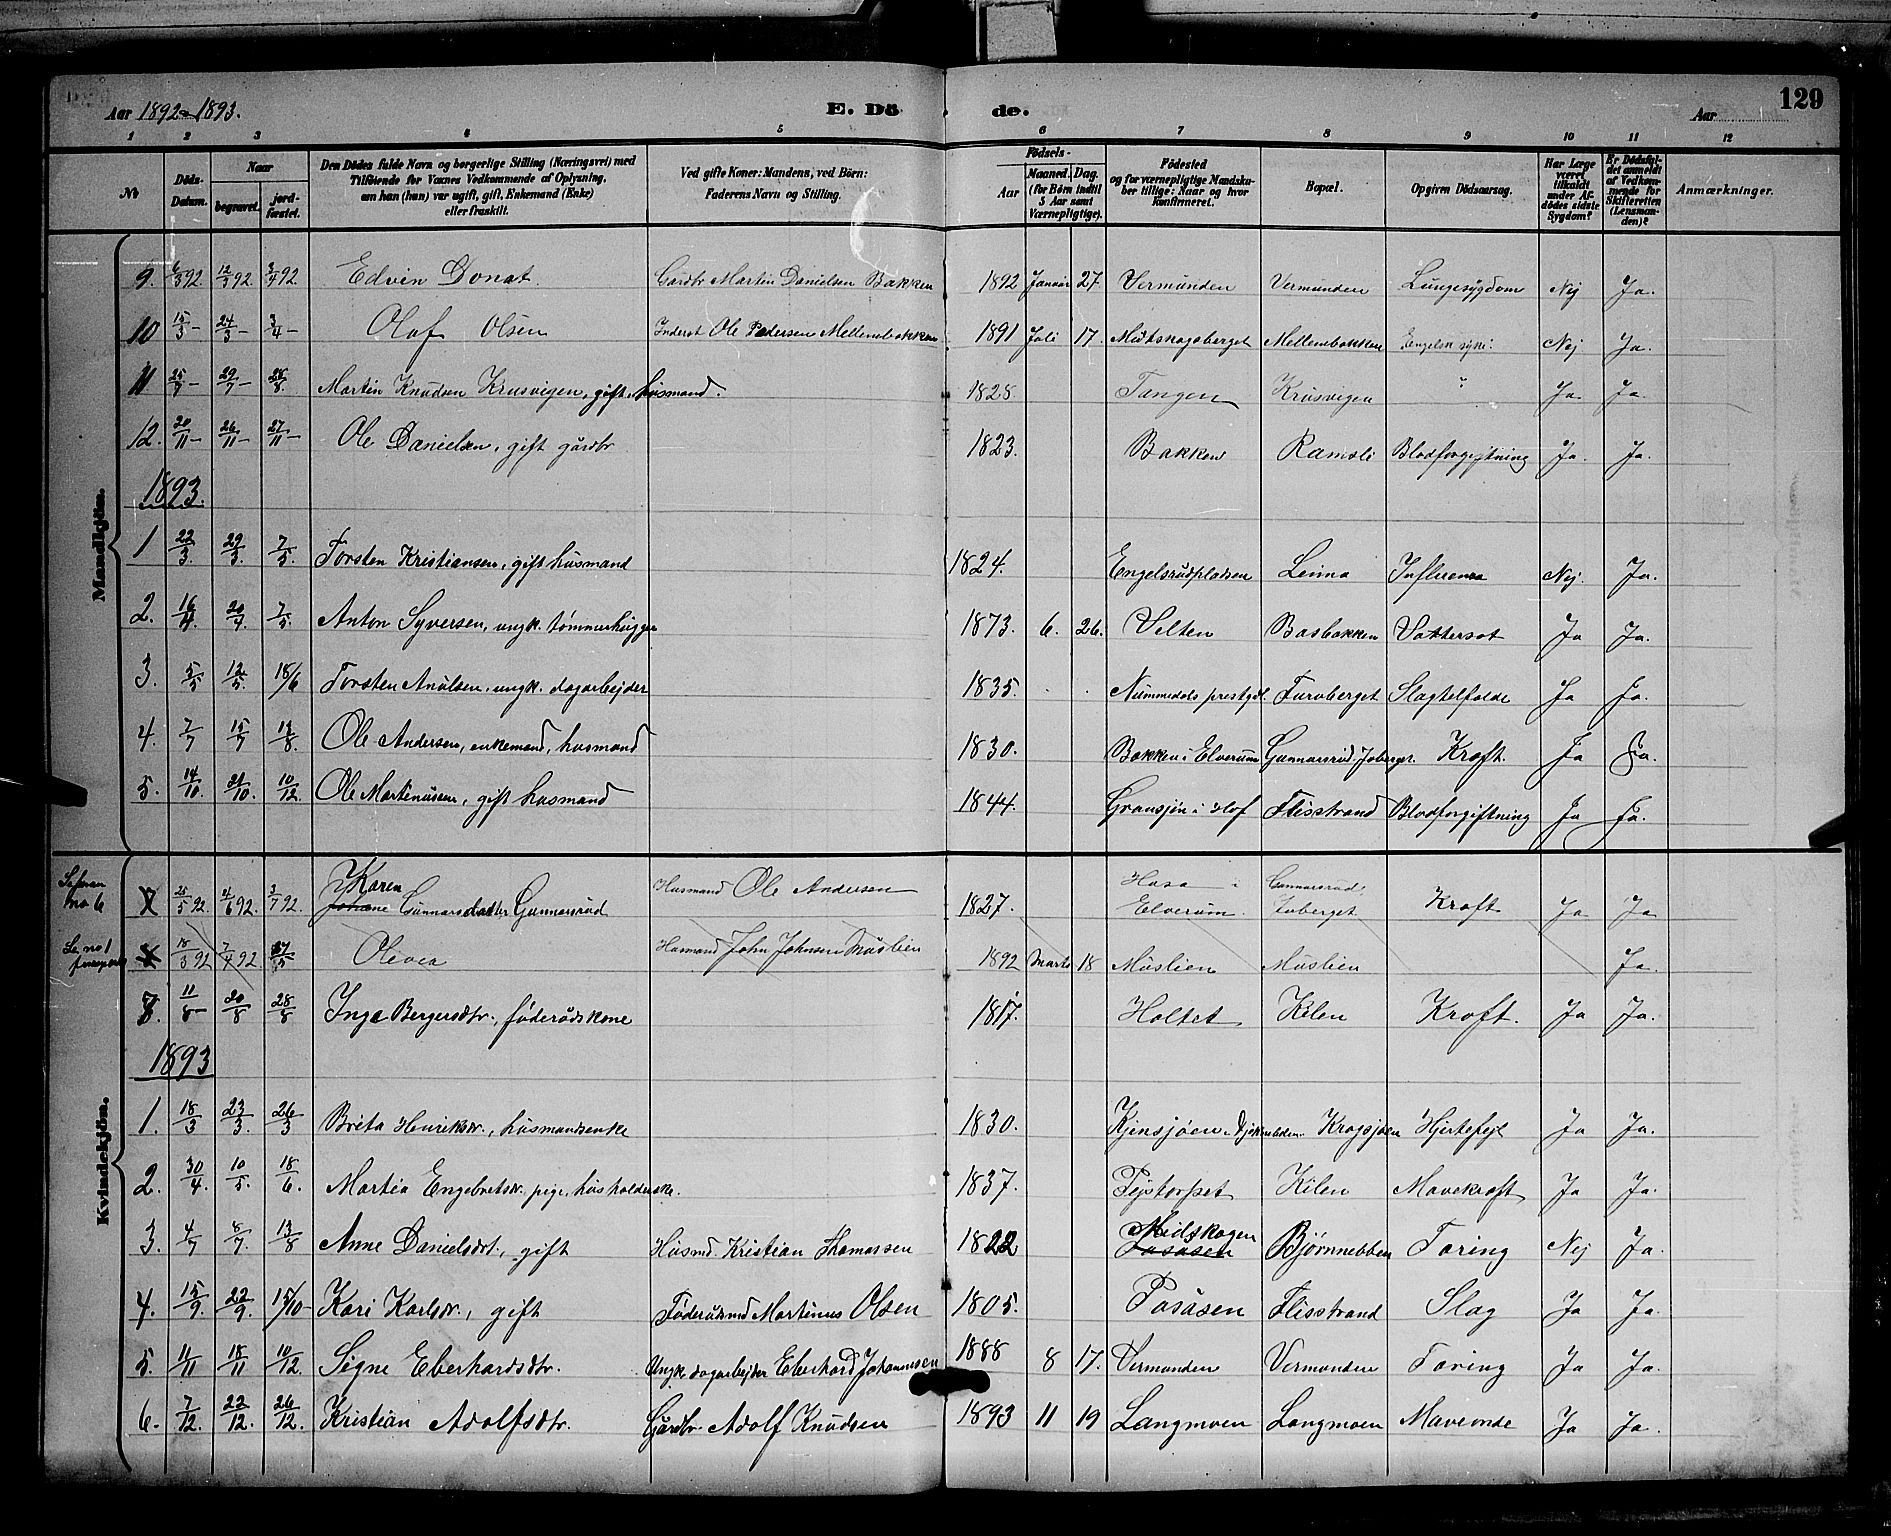 Aar 1892-1893. E. Dö de. Aar 129
1 2 3 4 5 6 7 8 9 10 11 12
№ Døds-Datum. Naar begravet. jordfæstet. Den Dødes fulde Navn og borgerlige Stilling (Næringsvei) med Tilføiende for Voxnes Vedkommende af Oplysning, om han (hun) var ugift, gift, Enkemand (Enke) eller fraskilt. Ved gifte Koner: Mandens, ved Börn: Faderens Navn og Stilling. Födsels- Aar Maaned. Dag. (for Börn indtil 5 Aar samt Værnepligtige). Födested og for værnepligtige Mandskaber tillige: Naar og hvor konfirmeret. Bopæl. Opgiven Dödsaarsag. Har Læge været tilkaldt under Afdödes sidste Sygdom? Er Dødsfaldet anmeldt af Vedkommende for Skifteretten (Lensmanden)? Anmærkninger.
Mandkjön.
9. 6/3 92. 12/3 92. 3/4 92 Edvin Donat. Gårdbr Martin Danielsen Bakken 1892 Januar 27. Vermunden Vermunden Lungesygdom Nej Ja.
10 15/3 - 24/3 - 3/4 - Olaf Olsen Inderst Ole Pedersen Mellembakken 1891 Juli 17. Midtskogsberget Mellembakken Engelsk syke. Nej Ja.
11 25/7 - 29/7 - 28/8 Martin Knudsen Krusvigen, gift husmand. 1828 Tangen Krusvigen " Ja Ja.
12. 20/11 - 26/11 - 27/11 - Ole Danielsen, gift gårdbr 1823. Bakken Ramsli Blodforgiftning Ja. Ja.
1893.
1 22/3. 29/3. 7/5. Torsten Kristiansen, gift husmand 1824. Engelsrudpladsen Leima Influenza Nej. Ja.
2. 16/4. 20/4. 7/5. Anton Syversen, ungk. tömmerhugger 1873. 6. 26. Velten Basbakken Vattersot Ja Ja.
3. 5/5 12/5. 18/6 Torsten Anulsen, ungk. dagarbejder 1835. Nummedals prestgd. Furuberget Slagtelfælde Ja Ja.
4. 7/7 15/7 13/8. Ole Andersen, enkemand, husmand 1830. Bakken i Elverum Gunnarsrud, Joberget. Kræft. Ja Ja.
5. 14/10. 21/10. 10/12. Ole Martinusen, gift husmand 1844. Gransjön i Hof Flisstrand Blodforgiftning Ja Ja.
Kvindekjön.
no 6 25/5 92. 4/6 92. 3/7 92. Karen Gunnarsdatter Gunnarsrud Husmand Ole Andersen 1827. Hasa i Elverum. Gunnarsrud, Joberget Kræft Ja Ja
Se no 1 18/3 92 7/4 92 Olevea Husmand John Johnsen Muslien 1892 Marts 18 Muslien Muslien Ja.
7. 11/8 - 20/8 28/8 Inga Bergersdtr., föderådskone 1817. Holtet Kilen Kræft. Ja Ja.
1893
1. 18/3 23/3. 26/3 Brita Henriksdr., husmandsenke 1830. Kjensjøen Krogsjøen Hjertefejl Ja Ja.
2. 30/4. 10/5. 18/6. Martia Engebretsdr. pige, husholderske. 1837. Tejstorpet Kilen Mavekræft Ja Ja.
3. 4/7 8/7. 13/8 Anne Danielsdt., gift Husmd. Kristian Thomassen 1822 Midskogen Bjørnnebben Tæring Nej Ja.
4. 13/9. 22/9. 15/10 Kari Karlsdr., gift Föderådsmd Martinus Olsen 1805. Pasåsen Flisstrand Slag Ja Ja.
5. 11/11 18/11 10/12. Signe Eberhardsdtr. Ungk. dagarbejder Eberhard Johannesen 1888 8 17. Vermunden Vermunden Tæring Ja Ja.
6. 7/12. 22/12. 26/12. Kristian Adolfsdtr. Gårdbr. Adolf Knudsen 1893 11 19 Langmoen Langmoen Maveonde Ja Ja.